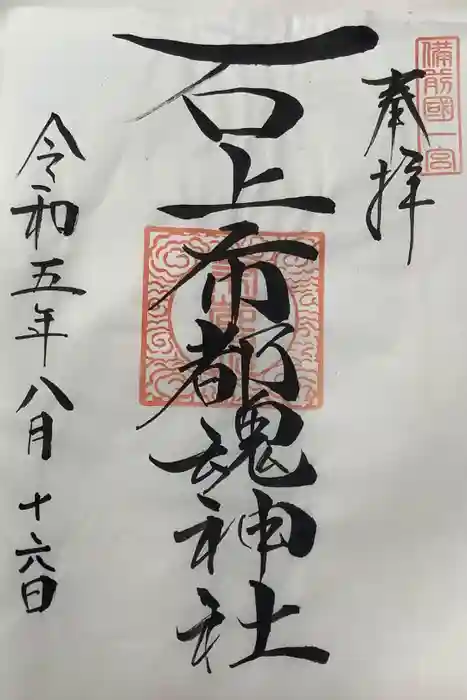 備前國一宮
奉拝
石上布都魂神社
令和五年八月十六日